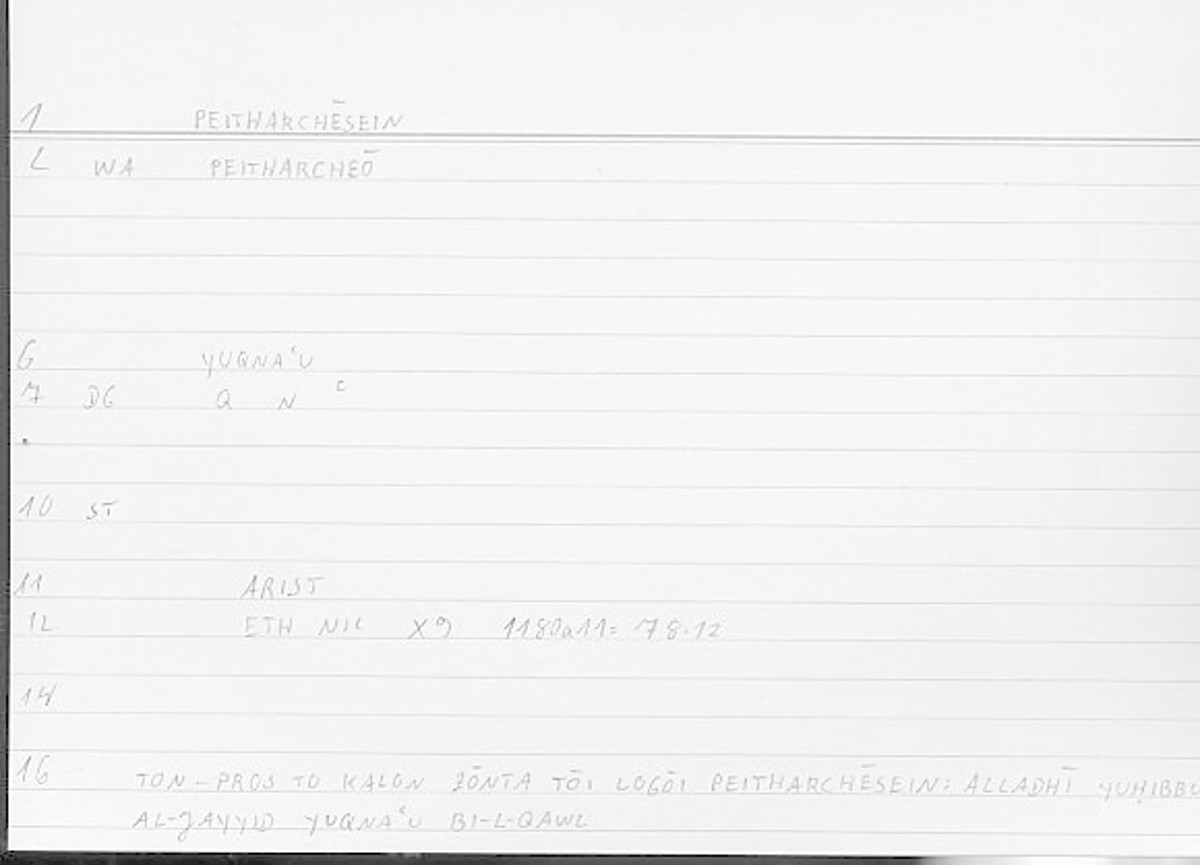 1 PEITHARCHĒSEIN
2 WA PEITHARCHEŌ
6 YUQNAʿU
7 DG Q N ʿ
10 ST
11 ARIST
12 ETH NIC X9 1180a11= 78.12
14
16 TON-PROS TO KALON ZŌNTA TŌI LOGŌI PEITHARCHĒSEIN: ALLADHĪ YUḤIBBU
AL-JAYYID YUQNAʿU BI-L-QAWL